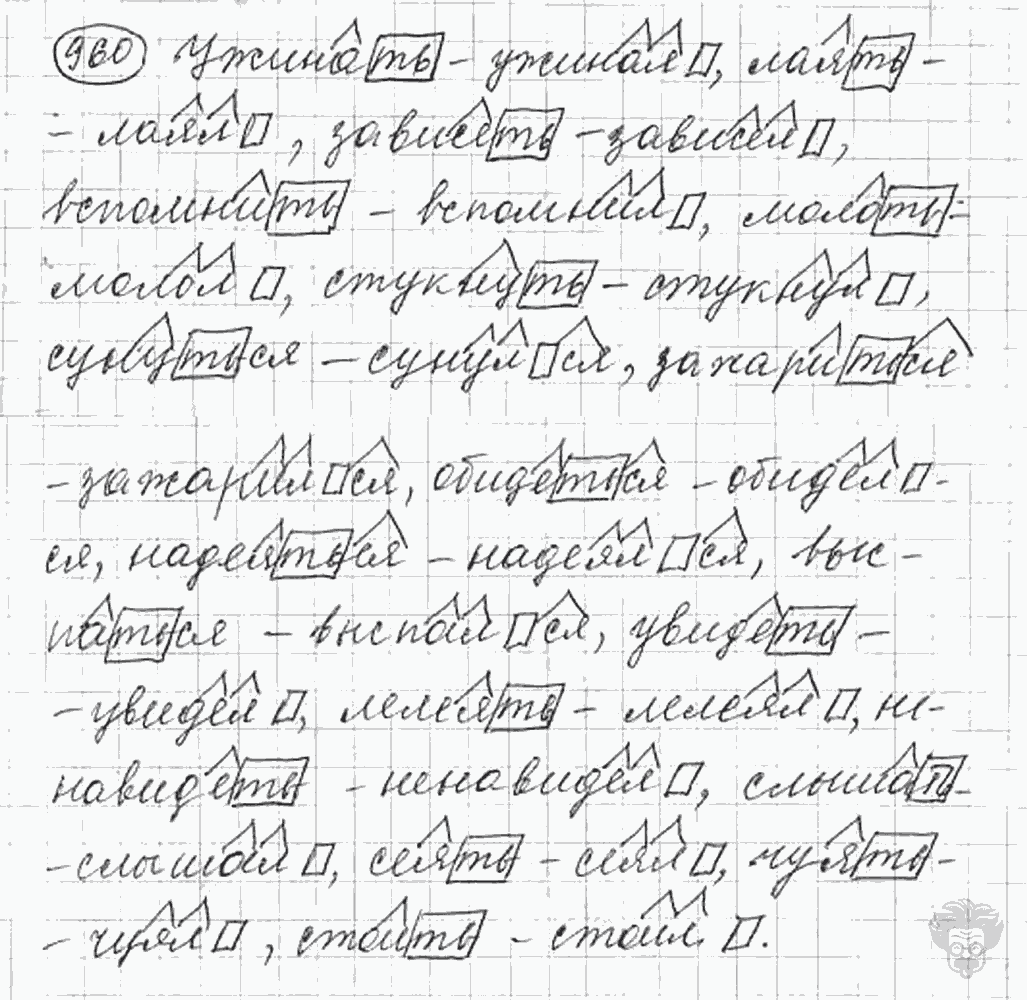 960 Ужинать - ужинал, лаять -
- лаял, зависеть - зависел,
вспомнить - вспомнил, молоть -
молол, стукнуть - стукнул,
сунуться - сунулся, зажариться
- зажарился, обидеться - обидел-
ся, надеяться - надеялся, выс-
паться - выспался, увидеть -
- увидел, лелеять - лелеял, не-
навидеть - ненавидел, слышать -
- слышал, сеять - сеял, чуять -
- чуял, стоить - стоил.